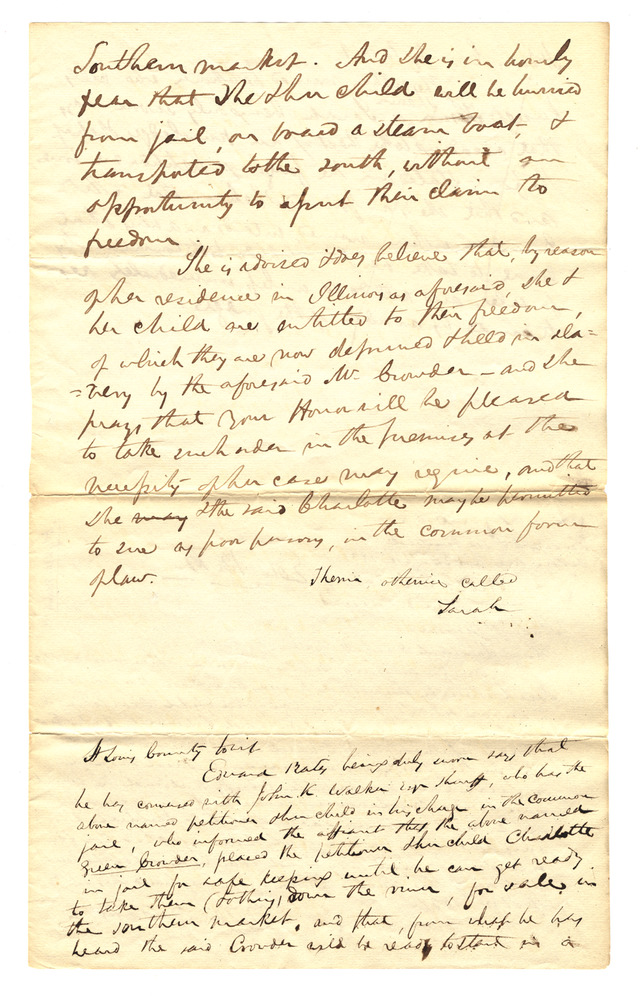 Southern market. And she is in hourly
fear that she & her child will be hurried
from jail, on board a steam boat, &
transported to the south, without an
opportunity to assert their claim to
freedom.
She is advised & does believe that, by reason
of her residence in Illinois as aforesaid, she &
her child are entitled to their freedom,
of which they are now deprived & held in sla=
=very by the aforesaid Mr Crowder — and she
prays that your Honor will be pleased
to take such order in the premises as the
necessity of her case may require, and that
she may & the said Charlotte may be permitted
to sue as poor persons, in the common form
of law.
otherwise called
Sarah
St Louis County to wit
Edward Bates being duly sworn says that
he has conversed with John K. Walker esqr sheriff, who has the
above named petitioner & her child in his charge in the common
jail, who informed the affiant that the above named
Green Crowder, placed the petitioner & her child Charlotte
in jail for safe keeping until he can get ready
to take them (& others) down the river, for sale in
the southern market, and that, from what he has
heard the said Crowder will be ready to start in a